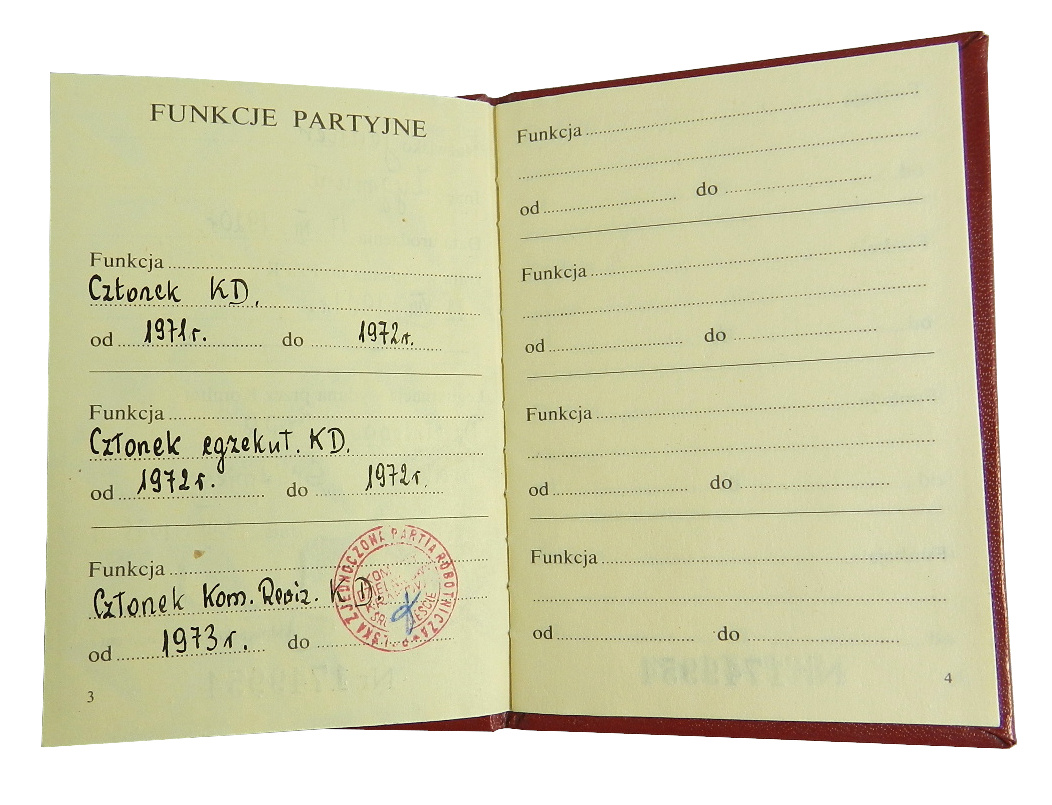 FUNKCJE PARTYJNE
Funkcja
Członek KD.
od 1971r. do 1972r.
Funkcja
Członek egzekut. KD.
od 1972r. do 1972r.
Funkcja
Członek Kom. Rewiz. KD.
od 1973r. do
ZJEDNOCZONA PARTIA ROBOTNICZA
3
Funkcja
od do
Funkcja
od do
Funkcja
od do
Funkcja
od do
4